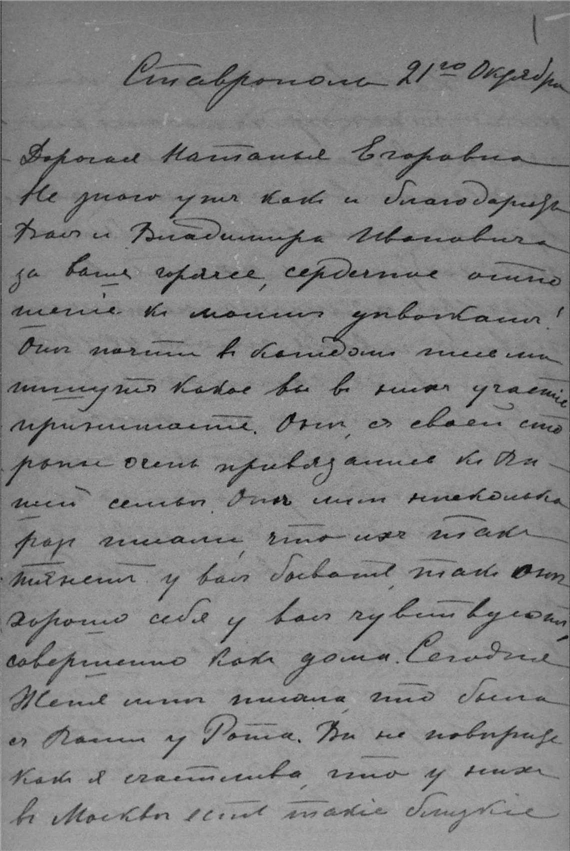 1
Ставрополь 21го Октября
Дорогая Наталья Егоровна
Не знаю ужъ какъ и благодарить
Васъ и Владимира Ивановича
за ваше горячее, сердечное отно
шеніе къ моимъ
Онѣ почти въ каждомъ письмѣ
пишутъ какое вы въ нихъ участіе
принимаете. Онѣ, съ своей сто
роны очень привязались къ Ва-
шей семьѣ. Онѣ мнѣ нѣсколько
разъ писали, что ихъ такъ
тянетъ у васъ бывать, такъ онѣ
хорошо себя у васъ чувствуютъ,
совершенно какъ дома. Сегодня
Женя мнѣ писала, что была
съ Вами у Рота. Вы не повѣрите
какъ я счастлива, что у нихъ
въ Москвѣ есть такіе близкіе